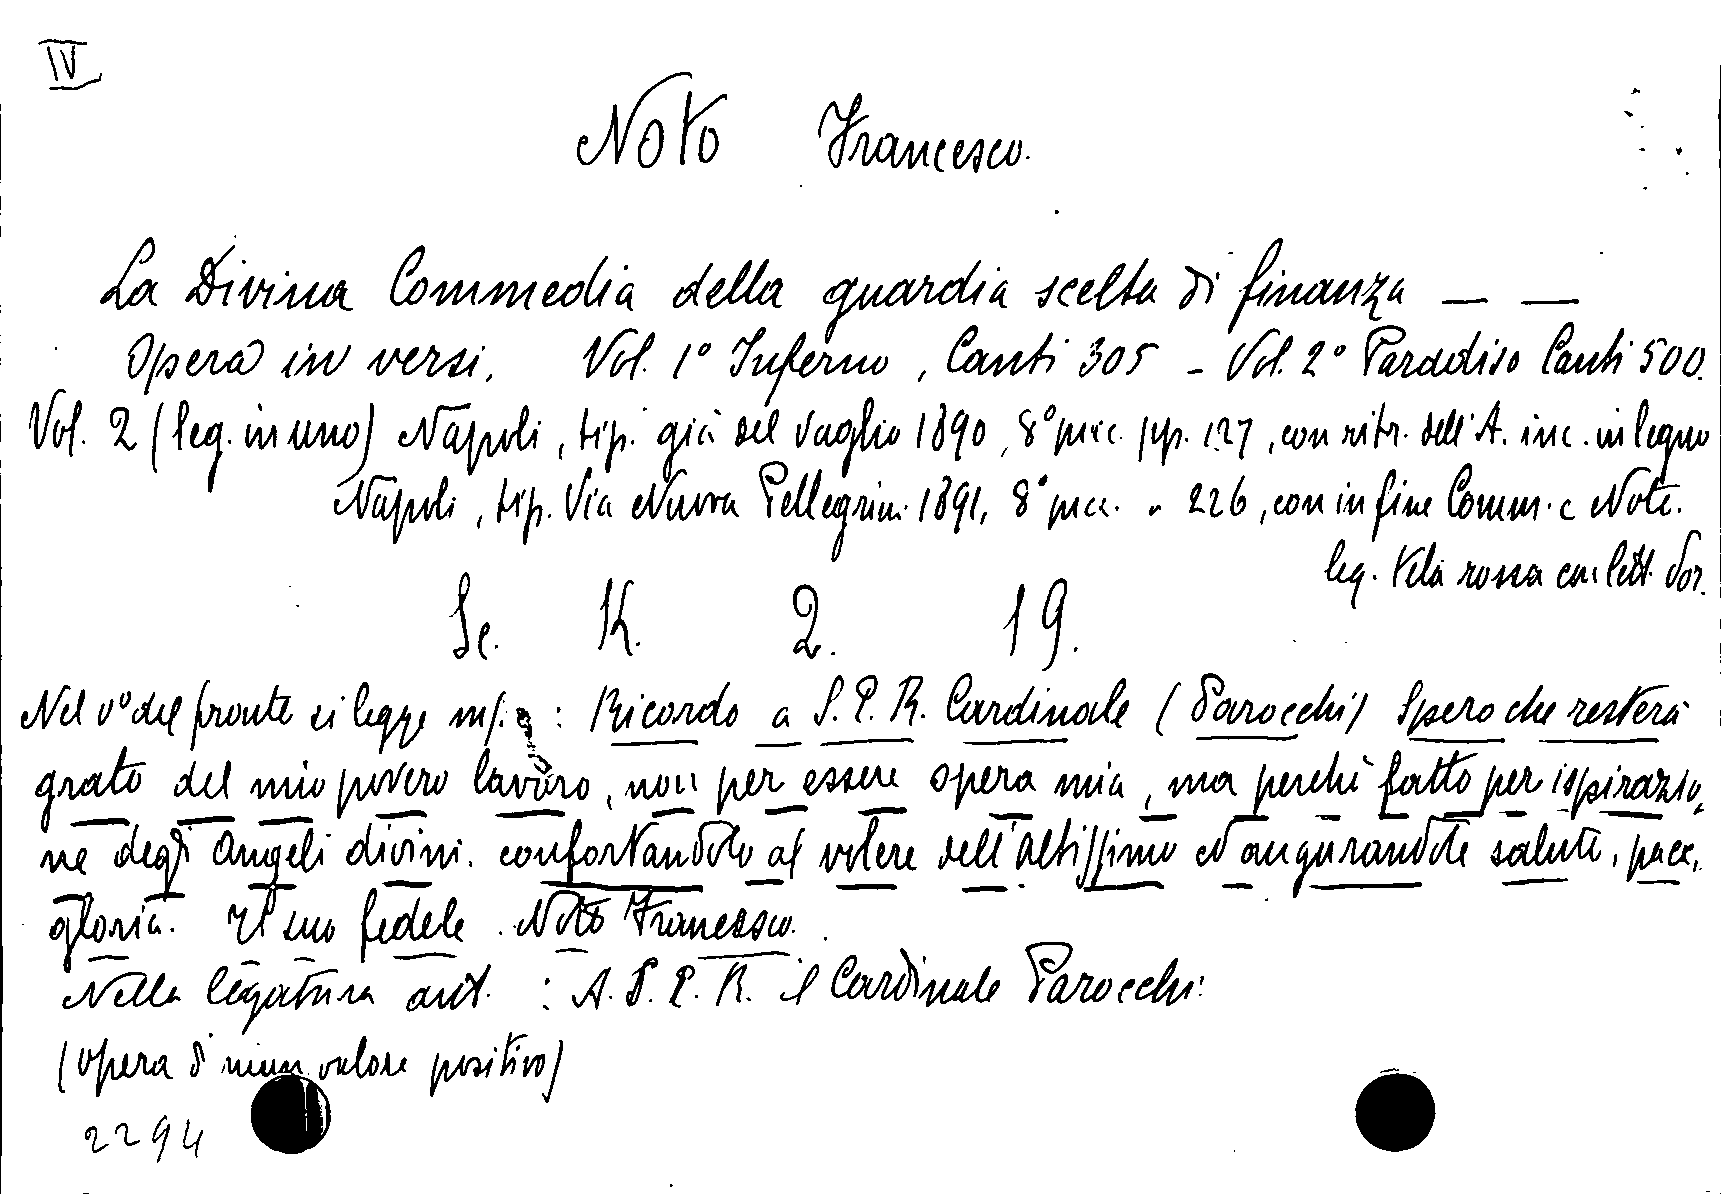 IV
Noto Francesco.
La Divina Commedia della guardia scelta di finanza — —
Opera in versi. Vol. 1° Inferno, Canti 305 - Vol. 2° Paradiso Canti 500.
Vol. 2 (leg. in uno) Napoli, tip. già del Vaglio 1890, 8° picc. pp. 127, con ritr. dell'A. inc. in legno
Napoli, tip. Via Nuova Pellegrini 1891, 8° picc. " 226, con in fine Comm. e Note.
leg. tela rossa con lett. d'or.
Sc. K. 2. 19.
Nel v° del fronte si legge : Ricordo a S. P. R. Cardinale (Parocchi) Spero che resterà
grato del mio povero lavoro, non per essere opera mia, ma perchè fatto per ispirazio,
ne degli Angeli divini. confortandolo al volere dell'altissimo ed augurandole salute, pace,
gloria. Il suo fedele Noto Francesco.
Nella legatura ant. : A. S. P. R. il Cardinale Parocchi:
(opera di niun valore positivo)
2294